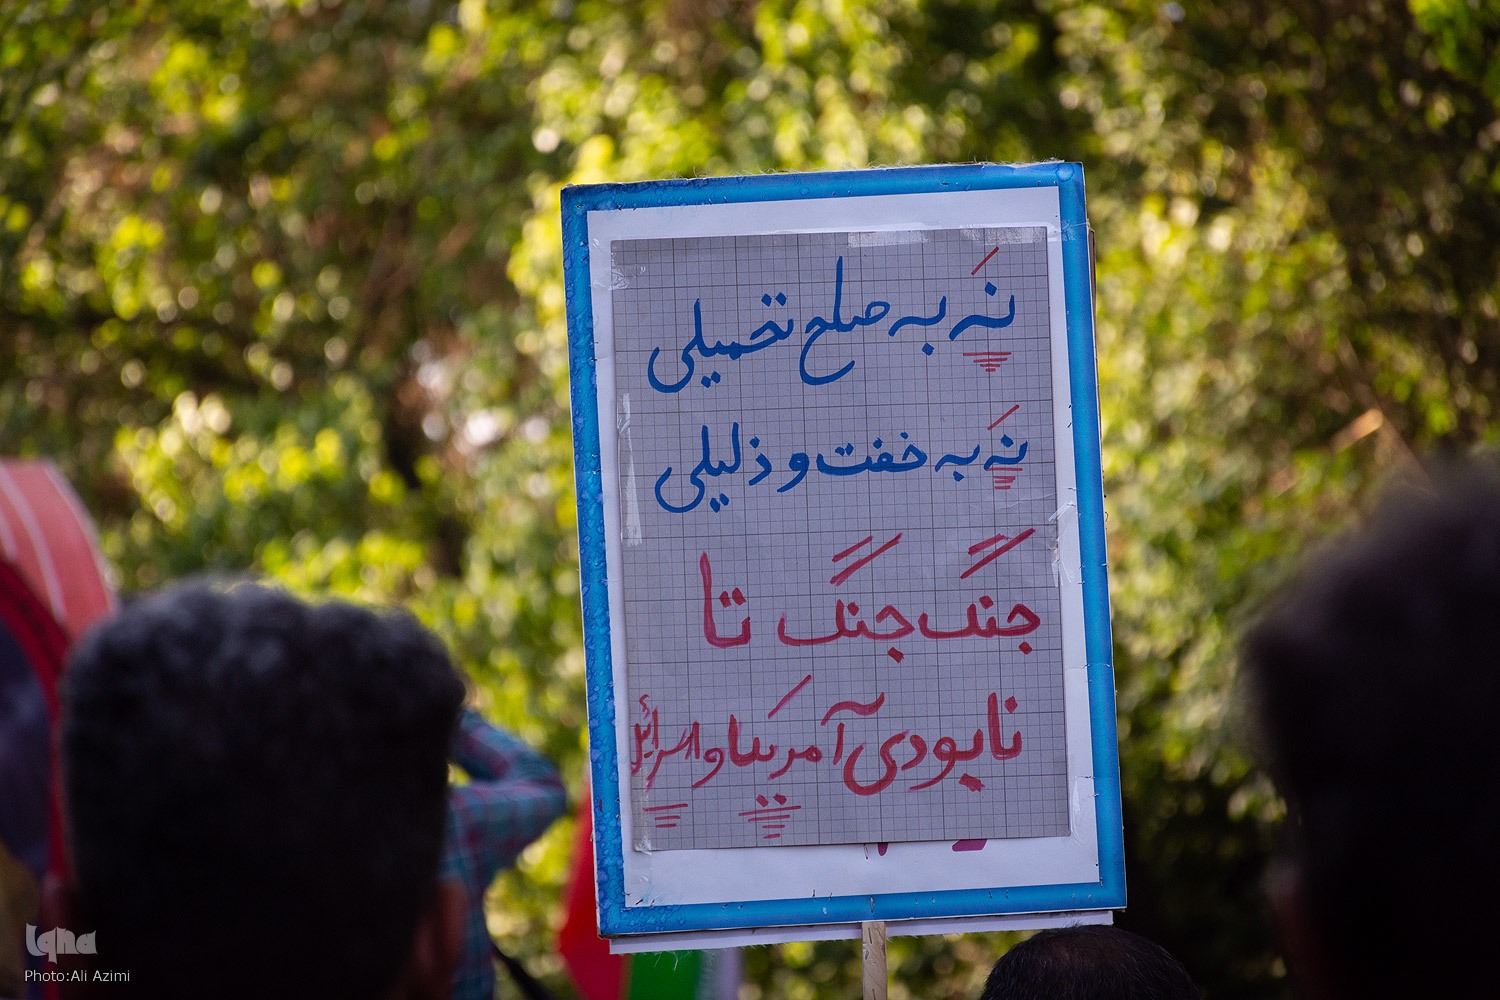 نَه به صلح تحمیلی
نَه به خفت و ذلیلی
جنگ جنگ تا
نابودی آمریکا و اسرائیل
Iqna
Photo:Ali Azimi